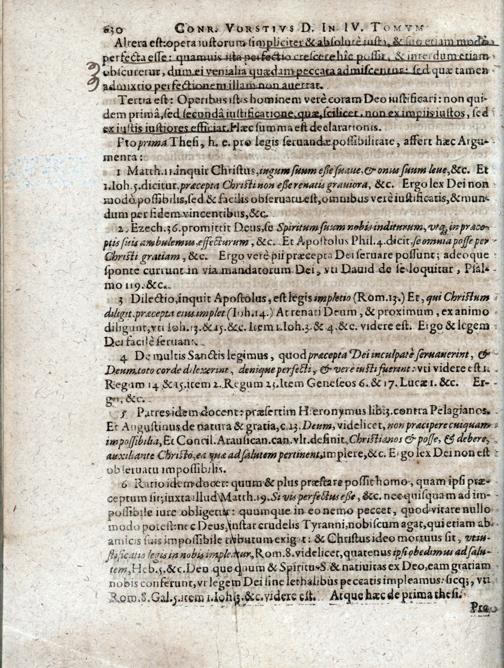 630 CONR. VORSTIVS D. IN IV. TOMVM
Altera est: opera iustorum simpliciter & absolutè iusta, & suo etiam modo
perfecta esse: quamuis ista perfectio crescere hîc possit, & interdum etiam
obscuretur, dum ei venialia quædam peccata admiscentur: sed quæ tamen
admixtio perfectionem illam non auertat.
Tertia est: Operibus istis hominem verè coram Deo iustificari: non qui-
dem primâ, sed secundâ iustificatione, quæ, scilicet, non ex impiis iustos, sed
ex iustis iustiores efficiat. Hæc summa est declarationis.
Pro prima Thesi, h. e. pro legis seruandæ possibilitate, affert hæc Argu-
menta:
1 Matth. 11. inquit Christus, iugum suum esse suaue, & onus suum leue, &c. Et
1. Ioh. 5. dicitur, præcepta Christi non esse renatis grauiora, &c. Ergo lex Dei non
modò possibilis, sed & facilis obseruatu est, omnibus verè iustificatis, & mun-
dum per fidem vincentibus, &c.
2. Ezech. 36. promittit Deus, se Spiritum suum nobis inditurum, vtq, in præce-
ptis suis ambulemus effecturum, &c. Et Apostolus Phil. 4. dicit, se omnia posse per
Christi gratiam, &c. Ergo verè pii præcepta Dei seruare possunt; adeoque
sponte currunt in via mandatorum Dei, vti Dauid de se loquitur, Psal-
mo 119. &c.
3 Dilectio, inquit Apostolus, est legis impletio (Rom. 13.) Et, qui Christum
diligit, præcepta eius implet (Ioh. 14.) At renati Deum, & proximum, ex animo
diligunt, vti Ioh. 13. & 15. &c. Item 1. Ioh. 3. & 4. &c. videre est. Ergo & legem
Dei facilè seruant.
4 De multis Sanctis legimus, quod præcepta Dei inculpatè seruauerint, &
Deum toto corde dilexerint, denique perfecti, & verè iusti fuerint: vti videre est 1.
Regum 14 & 15. item 2. Regum 23. Item Geneseos 6. & 17. Lucæ 1. &c. Er-
go, &c.
5 Patres idem docent: præsertim Hieronymus lib. 3. contra Pelagianos.
Et Augustinus de natura & gratia, c. 13. Deum, videlicet, non præcipere cuiquam
impossibilia, Et Concil. Arausican. can. vlt. definit, Christianos & posse, & debere,
auxiliante Christo, ea quæ ad salutem pertinent, implere, &c. Ergo lex Dei non est
obseruatu impossibilis.
6 Ratio idem docet: quum & plus præstare possit homo, quam ipsi præ-
ceptum sit; iuxta illud Matth. 19. Si vis perfectus esse, &c. nec quisquam ad im-
possibile iure obligetur: quumque in eo nemo peccet, quod vitare nullo
modo potest: nec Deus, instar crudelis Tyranni, nobiscum agat, qui etiam ab
amicis suis impossibile tributum exigat: & Christus ideo mortuus sit, vt iu-
stificatio legis in nobis impleatur, Rom. 8. videlicet, quatenus ipsi obedimus ad salu-
tem, Heb. 5. &c. Denique quum & Spiritus S. & natiuitas ex Deo, eam gratiam
nobis conferunt, vt legem Dei sine lethalibus peccatis impleamus: sicq; vti
Rom. 8. Gal. 5. item 1. Ioh. 3. &c. videre est. Atque hæc de prima thesi.
Pro